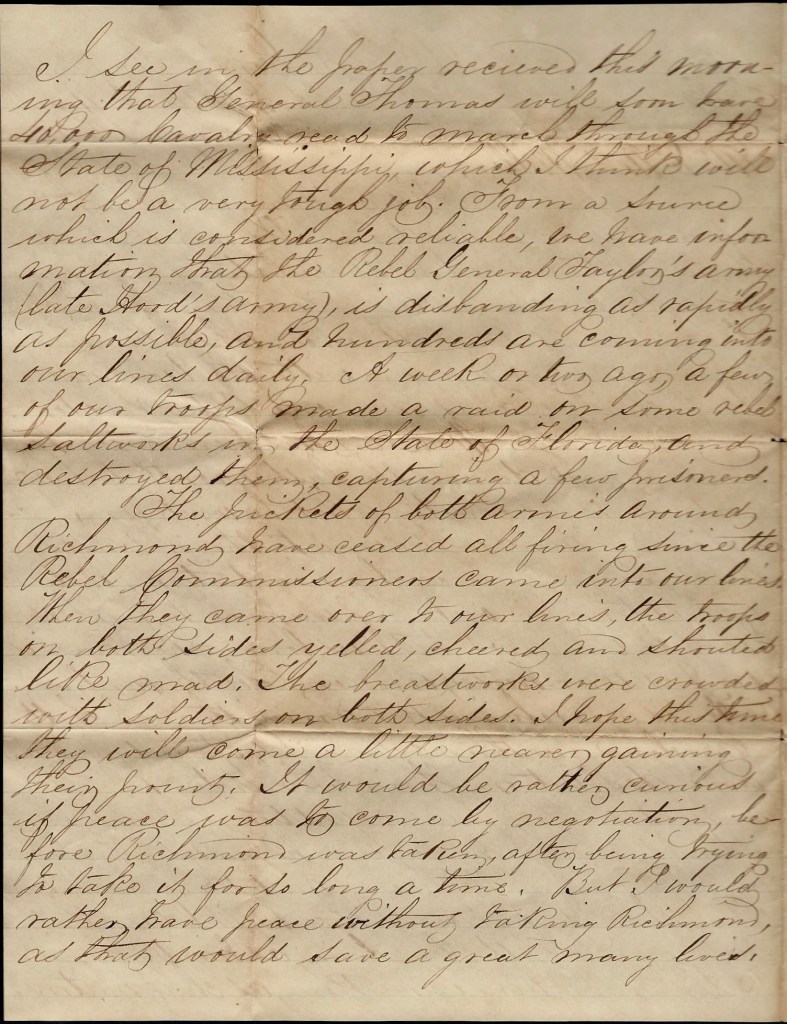 I see in the paper recieved this morn-
ing that General Thomas will soon have
40,000 Cavalry read to march through the
State of Mississippi, which I think will
not be a very tough job. From a source
which is considered reliable, we have infor-
mation that the Rebel General Taylor's army
(late Hood's army), is disbanding as rapidly
as possible, and hundreds are coming into
our lines daily. A week or two ago, a few
of our troops made a raid on some rebel
saltworks in the State of Florida, and
destroyed them, capturing a few prisoners.
The pickets of both armies around
Richmond have ceased all firing since the
Rebel Commissioners came into our lines.
When they came over to our lines, the troops
on both sides yelled, cheered and shouted
like mad. The breastworks were crowded
with soldiers on both sides. I hope this time
they will come a little nearer gaining
their point. It would be rather curious
if peace was to come by negotiation, be-
fore Richmond was taken, after being trying
to take it for so long a time. But I would
rather have peace without taking Richmond,
as that would save a great many lives.